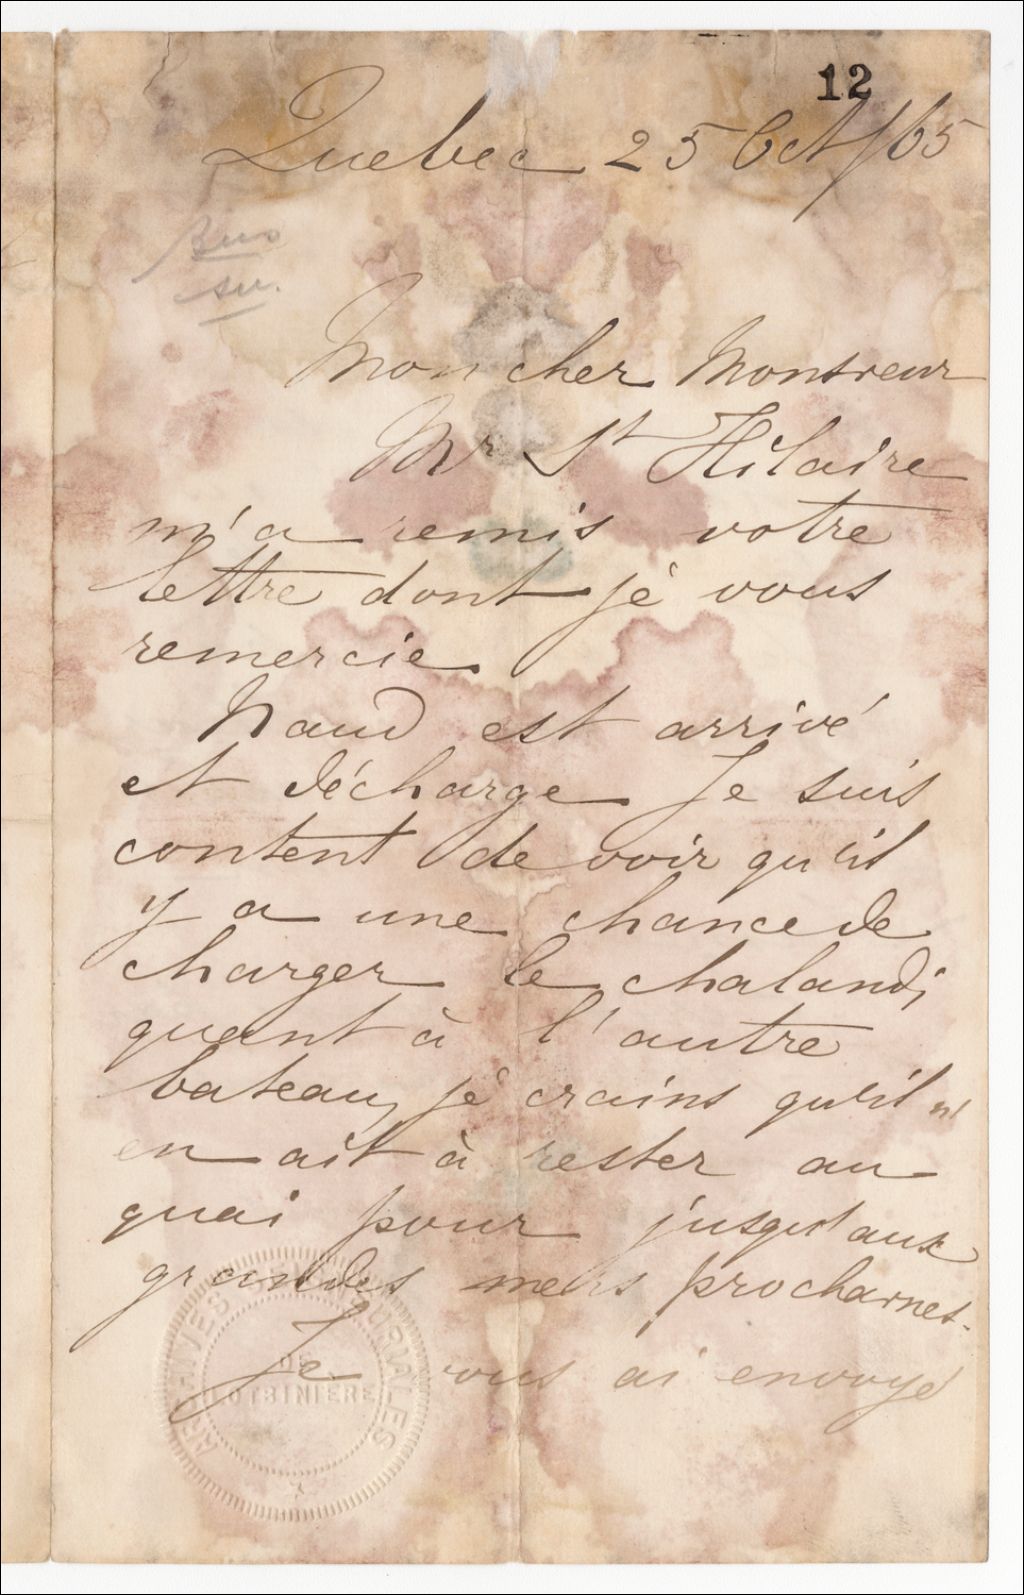 12
Quebec 25 Oct/65
Mon cher Monsieur
Mr St Hilaire
m'a remis votre
lettre dont je vous
remercie.
Naud est arrivé
et décharge Je suis
content de voir qu'il
y a une chance de
charger le chaland;
quant à l'autre
bateau, je crains qu'il n'
en ait à rester au
quai pour jusqu'aux
grandes mers prochaines.
Je vous ai envoyé
ARCHIVES SEIGNEURIALES
DE
LOTBINIERE